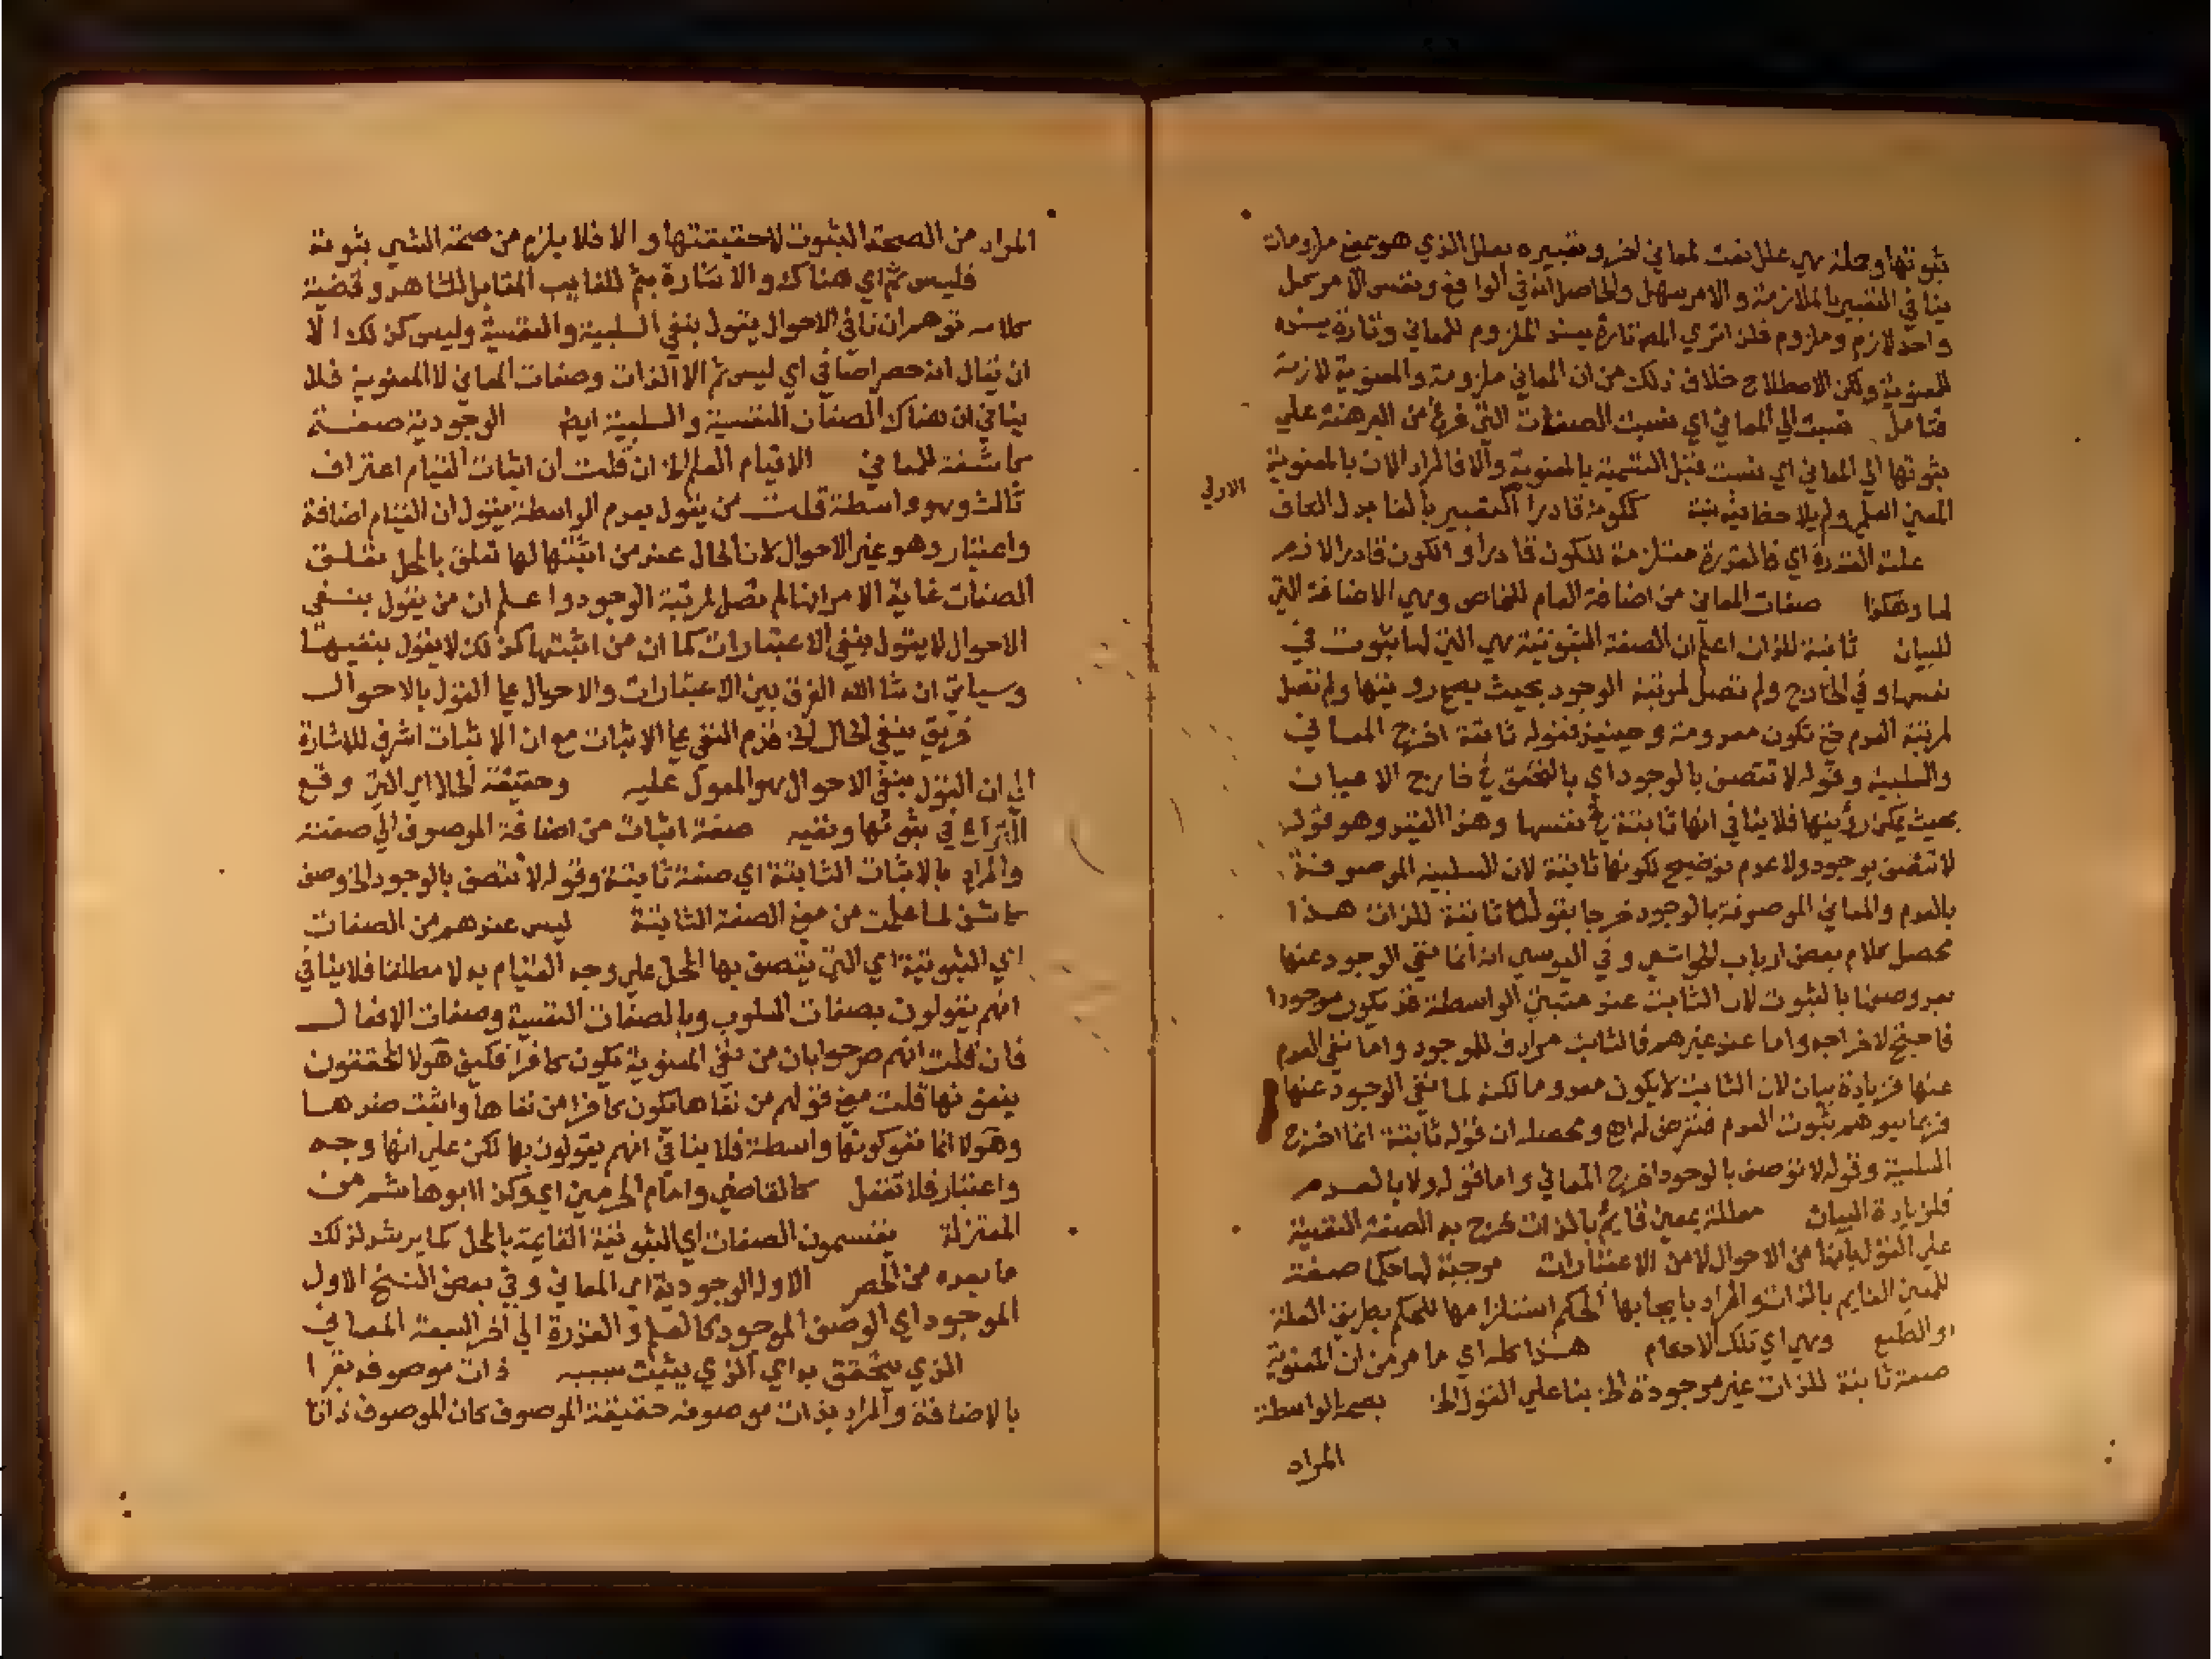 ثبوتها وجملة هي علل نعت لمعاني لخ وتعبيره بعلل الذي هو بمعنى ملزومات
ينافي التعبير بالملازمة والامر سهل والحاصل انه في الواقع ونفس الامر كل
واحد لازم وملزوم فلذا ترى المص تارة يسند الملزوم للمعاني وتارة يسنده
للمعنوية ولكن الاصطلاح خلاف ذلك من ان المعاني ملزومة والمعنوية لازمة
فتامل نسبت الي المعاني اي نسبت الصفات التي فرغ من البرهنة علي
ثبوتها الي المعاني اي نسبت قبل التسمية بالمعنوية والا فالمراد الان بالمعنوية
الاولي
المعين العلم ولم يلاحظ نسبة ككونه قادرا التعبير بالفا بدل الكاف
علته القدرة اي فالقدرة مستلزمة للكون قادرا والكون قادرا لازم
لها وهكذا صفات المعاني من اضافة العام للخاص وهي الاضافة التي
للبيان ثابتة للذات اعلم ان الصفة الثبوتية هي التي لها ثبوت في
نفسها وفي الخارج ولم تصل لمرتبة الوجود بحيث يصح رويتها ولم تصل
لمرتبة العدم حتى تكون معدومة وحينيذ فقوله ثابتة اخرج المعاني
والسلبية وقوله لا تتصف بالوجود اي بالتحقق في خارج الاعيان
بحيث يمكن رؤيتها فلا ينافي انها ثابتة في نفسها وهذا القيد وهو قوله
لا تتصف بوجود ولا عدم توضيح لكونها ثابتة لان السلبية الموصوفة
بالعدم والمعاني الموصوفة بالوجود خرجا بقوله ثابتة للذات هذا
محصل كلام بعض ارباب الحواشي وفي اليوسي انه انما نفي الوجود عنها
بعد وصفها بالثبوت لان الثابت عند مثبتي الواسطة قد يكون موجودا
فاحتيج لاخراجه واما عند غيرهم فالثابت مرادف للموجود واما نفي العدم
عنها فزيادة بيان لان الثابت لا يكون معدوما لكنه لما نفي الوجود عنها
فربما يوهم ثبوت العدم فتعرض له اهـ ومحصله ان قوله ثابتة انما اخرج
السلبية وقوله لا توصف بالوجود اخرج المعاني واما قوله ولا بالعدم
فلزيادة البيان معللة بمعين قايم بالذات خرج به الصفة النفسية
علي القول بانها من الاحوال لا من الاعتبارات موجبة لها حكما صفة
للمعين القايم بالذات والمراد بايجابها الحكم استلزامها للحكم بطريق العلة
او الطبع وهي اي تلك الاحكام هذا كله اي ما مر من ان المعنوية
صفة ثابتة للذات غير موجودة الخ بنا علي القول الخ بصحة الواسطة
المراد
المراد من الصحة الثبوت لا حقيقتها والا فلا يلزم من صحة الشي ثبوته
فليس ثم اي هناك والاشارة بثم للغايب المقابل للشاهد وقضية
كلامه توهم ان نافي الاحوال يقول بنفي السلبية والنفسية وليس كذلك الا
ان يقال انه حصر اضافي اي ليس ثم الا الذات وصفات المعاني لا المعنوية فلا
ينافي ان هناك الصفات النفسية والسلبية ايض الوجودية صفة
كاشفة للمعاني الا قيام العلم الخ ان قلت ان اثبات القيام اعتراف
ثالث وهو واسطة قلت من يقول بعدم الواسطة يقول ان القيام اضافة
واعتبار وهو غير الاحوال لان الحال عند من اثبتها لها تعلق بالمحل تعلق
الصفات غاية الامر انها لم تصل لمرتبة الوجود واعلم ان من يقول بنفي
الاحوال لا يقول بنفي الاعتبارات كما ان من اثبتها كذلك لا يقول بنفيها
وسياتي ان شا الله الفرق بين الاعتبارات والاحوال علي القول بالاحوال
فريق بنفي الحال الخ قدم النفي علي الاثبات مع ان الاثبات اشرف للاشارة
الي ان القول بنفي الاحوال هو المعول عليه وحقيقة الحال اي التي وقع
النزاع في ثبوتها ونفيه صفة اثبات من اضافة الموصوف الي صفته
والمراد بالاثبات الثابتة اي صفة ثابتة وقوله لا تتصف بالوجود الخ وصف
كاشف لما علمت من معنى الصفة الثابتة ليس عندهم من الصفات
اي الثبوتية اي التي يتصف بها المحل علي وجه القيام به لا مطلقا فلا ينافي
انهم يقولون بصفات السلوب وبالصفات النفسية وصفات الافعال
فان قلت انهم صرحوا بان من نفي المعنوية يكون كافرا فكيف هولا المحققون
ينفونها قلت معنى قولهم من نفاها يكون كافرا من نفاها واثبت ضدها
وهولا انما نفو كونها واسطة فلا ينافي انهم يقولون بها لكن علي انها وجه
واعتبار فلا تغفل كالقاضي وامام الحرمين اي وكذا ابو هاشم من
المعتزلة يقسمون الصفات اي الثبوتية القايمة بالمحل كما يرشد لذلك
ما بعده من الحصر الاولي الوجودية اي المعاني وفي بعض النسخ الاول
الموجود اي الوصف الموجود كالعلم والقدرة الي اخر السبعة المعاني
الذي يتحقق به اي الذي يثبت سببه ذات موصوفه يقرا
بالاضافة والمراد بذات موصوفه حقيقة الموصوف كان الموصوف ذاتا